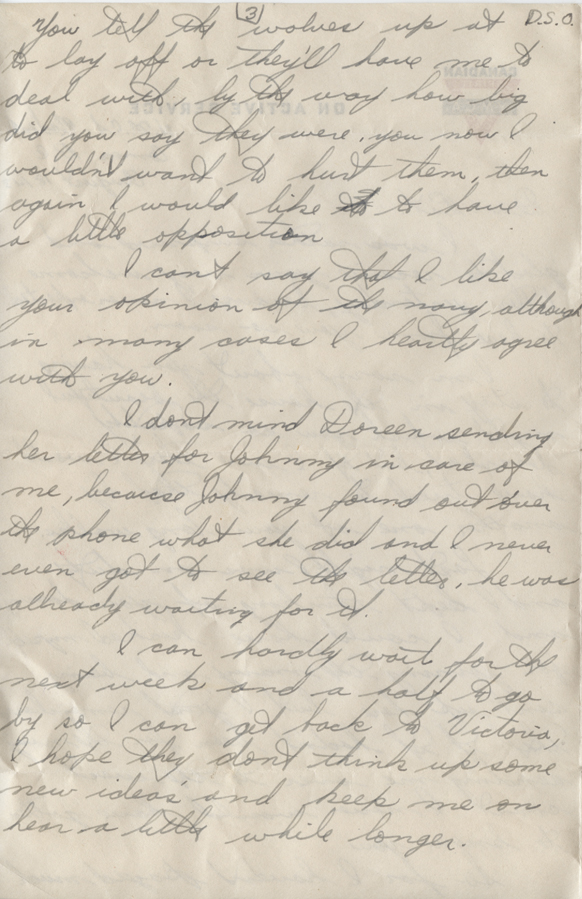 3
D.S.O.
You tell the wolves up at
to lay off or they'll have me to
deal with, by the way how big
did you say they were, you now I
wouldn't want to hurt them, then
again I would like to have
a little opposition
I can't say that I like
your opinion of the navy, although
in many cases I heartly agree
with you.
I don't mind Doreen sending
her letter for Johnny in care of
me, because Johnny found out over
the phone what she did and I never
even got to see the letter, he was
allready waiting for it.
I can hardly wait for the
next week and a half to go
by so I can get back to Victoria,
I hope they don't think up some
new ideas and keep me on
hear a little while longer.
CANADIAN
ON ACTIVE SERVICE